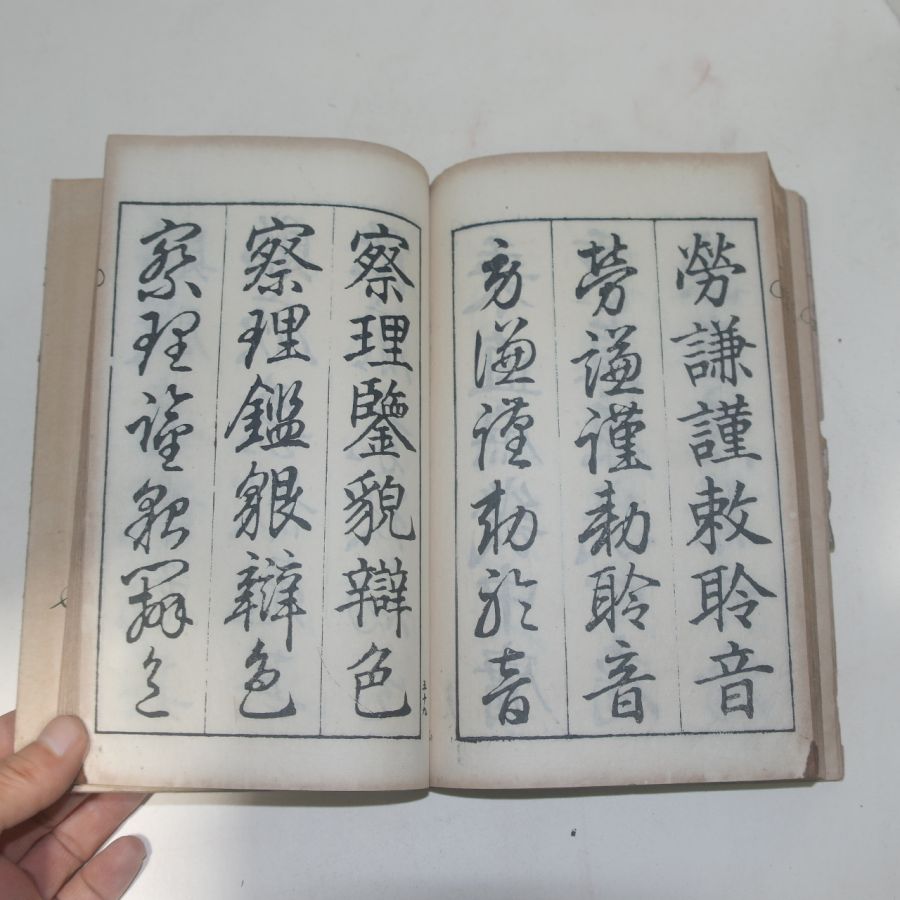 勞謙謹敕聆音
勞謙謹勅聆音
勞謙謹勅聆音
察理鑒貌辯色
五十九
察理鑑貌辯色
察理鑑貌辯色